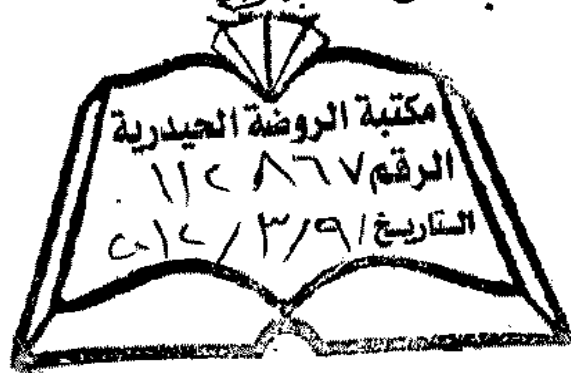 مكتبة الروضة الحيدرية
الرقم ١١٢٨٦٧
التاريخ / ٩ / ٣ / ٢٠١٢